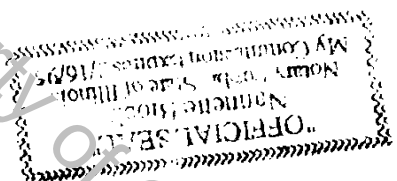 "OFFICIAL SEAL"
Nannette
Notary Public, State of Illinois
My Commission Expires 2/16/95
rty of